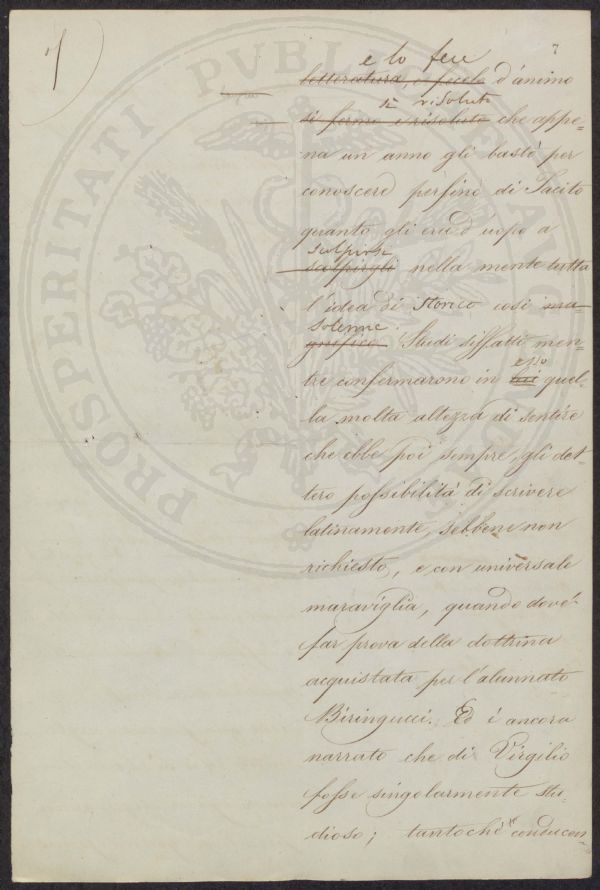 7
e lo fece
letteratura, e fecelo d'animo
sì risoluto
sì fermo e risoluto che appe=
na un anno gli bastò per
conoscere perfino di Tacito
quanto gli era d'uopo a
scolpirse
scolpirgli nella mente tutta
l'idea di storico così ma=
solenne.
gnifico. Studi siffatti men=
esso
tre confermarono in lui quel=
la molta altezza di sentire
che ebbe poi sempre, gli det=
tero possibilità di scrivere
latinamente, sebbene non
richiesto, e con universale
maraviglia, quando dové
far prova della dottrina
acquistata per l'alunnato
Biringucci. Ed è ancora
narrato che di Virgilio
fosse singolarmente stu=
dioso; tantoché "conducen=
PROSPERITATI PVBLICAE